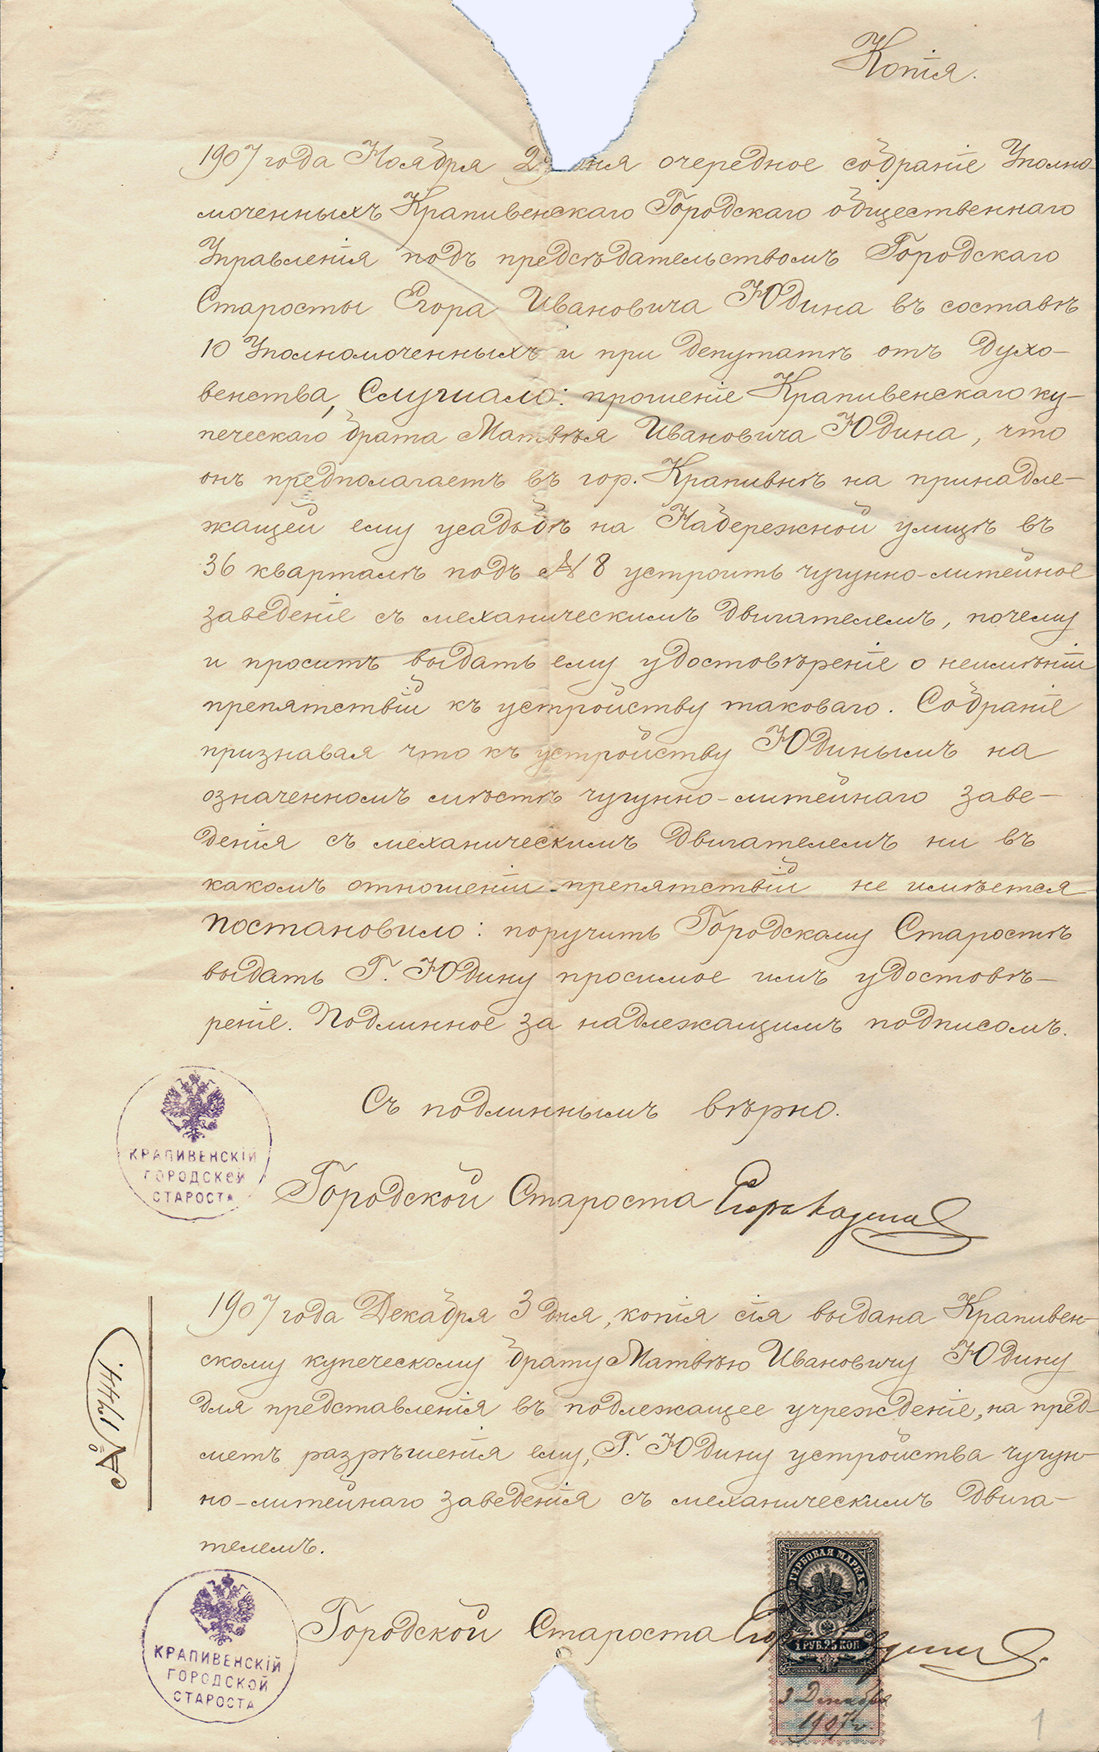 Копія.
1907 года Ноября 2 дня очередное собраніе Уполно-
моченныхъ Крапивенскаго Городскаго общественнаго
Управленія подъ предсѣдательствомъ Городскаго
Старосты Егора Ивановича Юдина въ составѣ
10 Уполномоченныхъ и при депутатѣ отъ Духо-
венства, Слушало: прошеніе Крапивенскаго ку-
печескаго брата Матвѣя Ивановича Юдина, что
онъ предполагаетъ въ гор. Крапивнѣ на принадле-
жащей ему усадьбѣ на Набережной улицѣ въ
36 кварталѣ подъ № 8 устроить чугунно-литейное
заведеніе съ механическимъ двигателемъ, почему
и проситъ выдать ему удостовѣреніе о неимѣніи
препятствій къ устройству таковаго. Собраніе
признавая что къ устройству Юдинымъ на
означенномъ мѣстѣ чугунно-литейнаго заве-
денія съ механическимъ двигателемъ ни въ
какомъ отношеніи препятствій не имѣется
постановило: поручить Городскому Старостѣ
выдать Г. Юдину просимое имъ удостовѣ-
реніе. Подлинное за надлежащимъ подписомъ.
Съ подлиннымъ вѣрно.
КРАПИВЕНСКІЙ
ГОРОДСКОЙ
СТАРОСТА
Городской Староста Егоръ Юдинъ
1907 года Декабря 3 дня, копія сія выдана Крапивен-
скому купеческому брату Матвѣю Ивановичу Юдину
для представленія въ подлежащее учрежденіе, на пред-
метъ разрѣшенія ему, Г. Юдину устройства чугун-
но-литейнаго заведенія съ механическимъ двига-
телемъ.
КРАПИВЕНСКІЙ
ГОРОДСКОЙ
СТАРОСТА
Городской Староста Егоръ Юдинъ.
ГЕРБОВАЯ МАРКА
1 РУБ. 25 КОП.
3 Декабря
1907 г.
1